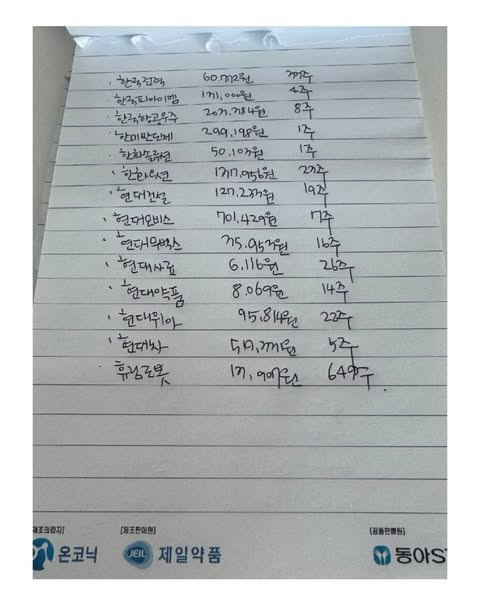 · 한국전력 60.772원 35주
· 한국피아이엠 131,000원 4주
· 한국항공우주 203.784원 8주
· 한미반도체 299,198원 1주
· 한화솔루션 50.103원 1주
· 한화오션 137.956원 23주
· 현대건설 127.233원 19주
· 현대모비스 701.429원 7주
· 현대무벡스 35.953원 16주
· 현대사료 6.116원 26주
· 현대약품 8.069원 14주
· 현대위아 95.814원 22주
· 현대차 5주
· 휴림로봇 649주
제조의뢰자] [제조판매원] [공동판매원]
온코닉 JEIL 제일약품 동아S